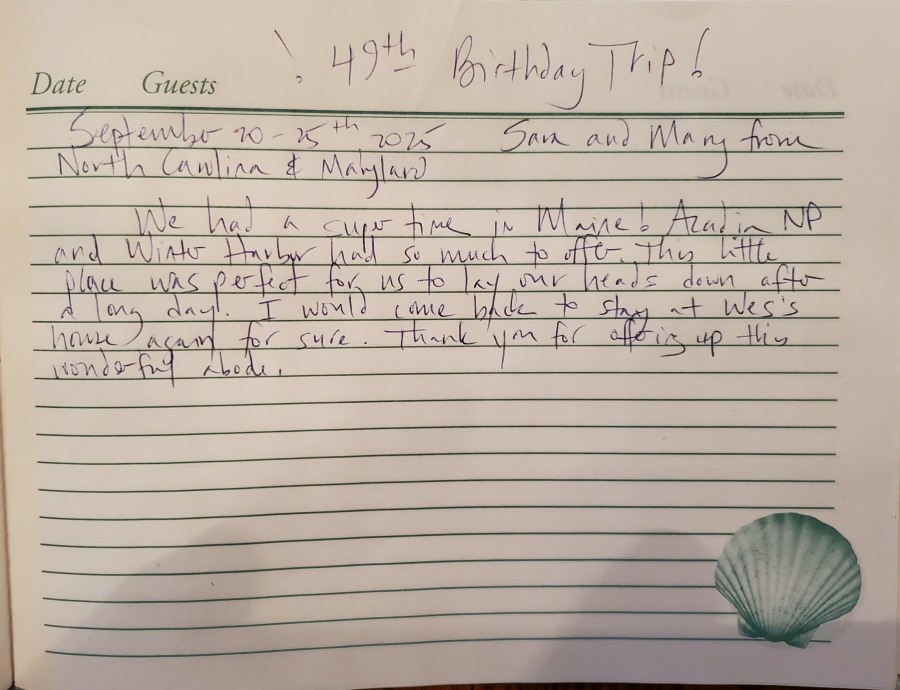 ! 49th Birthday Trip!
Date Guests
September 20-25th 2025 Sara and Mary from
North Carolina & Maryland
We had a super time in Maine! Acadia NP
and Winter Harbor had so much to offer. This little
place was perfect for us to lay our heads down after
a long day!. I would come back to stay at Wes's
house again for sure. Thank you for offering up this
wonderful abode.